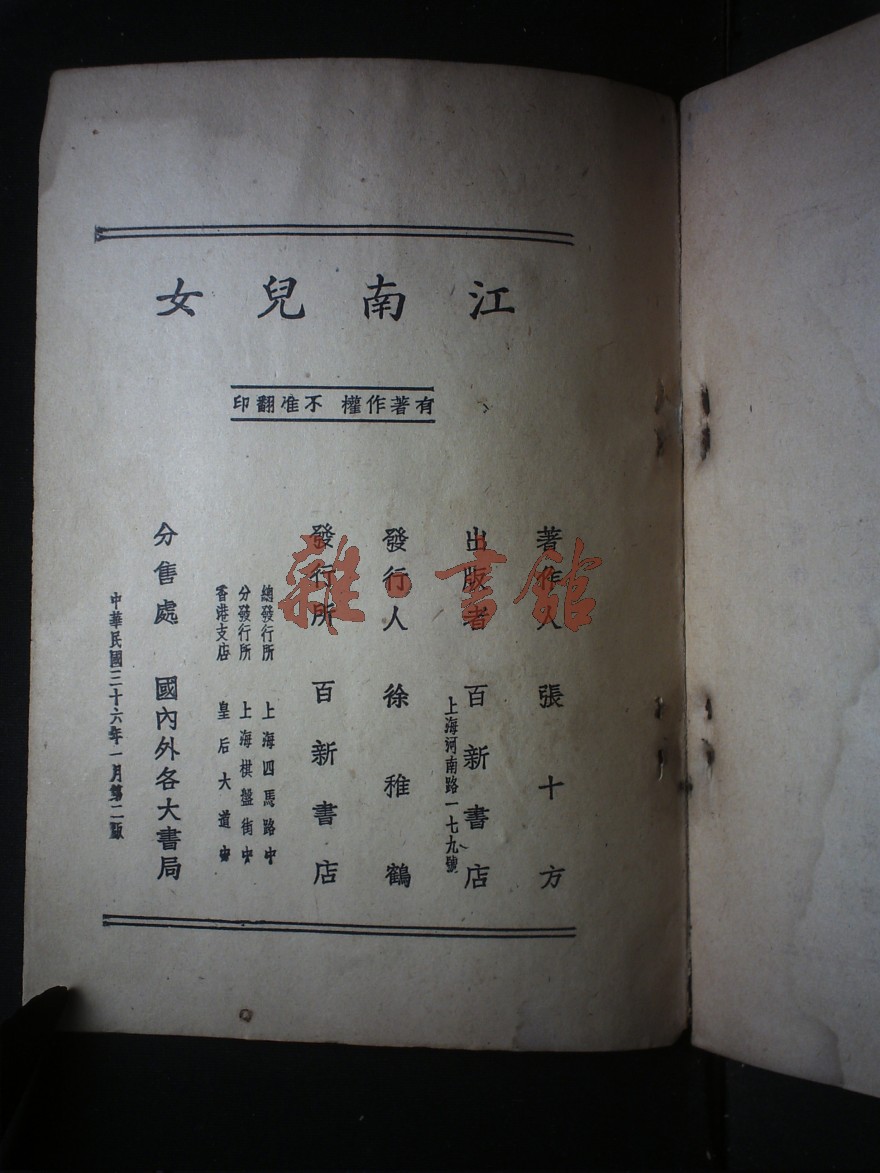 江南兒女
有著作權 不准翻印
著作人 張十方
出版者 百新書店
上海河南路一七九號
發行人 徐稚鶴
發行所 百新書店
總發行所 上海四馬路中
分發行所 上海棋盤街中
香港支店 皇后大道中
分售處 國內外各大書局
中華民國三十六年一月第二版
雜·書館